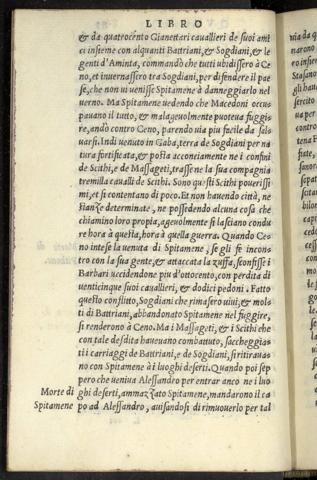 LIBRO
& da quatrocẽto Gianettari cauallieri de suoi ami
ci insieme con alquanti Battriani, & Sogdiani, & le
genti d'Aminta, commandò che tutti ubidissero à Ce
no, et inuernassero tra Sogdiani, per difendere il pae
se, che non ui uenisse Spitamene à danneggiarlo nel
uerno. Ma Spitamene uedendo che Macedoni occu
pauano il tutto, & malageuolmente puoteua fuggi
re, andò contro Ceno, parendo uia piu facile da sal
uarsi. Indi uenuto in Gaba, terra de Sogdiani per na
tura fortificata, & posta acconciamente ne i confini
de Scithi, e de Massageti, trasse ne la sua compagnia
tremilla caualli de Scithi. Sono questi Scithi pouerissi
mi, et si contentano di poco. Et non hauendo città, ne
stanze determinate, ne possedendo alcuna cosa che
chiamino loro propia, ageuolmente si lasciano condu
re hora à questa, hora à quella guerra. Quando Ce=
no intese la uenuta di Spitamene, se gli fe incon=
tro con la sua gente, & attaccata la zuffa, sconfisse i
Barbari uccidendone piu d'ottocento, con perdita di
uenticinque suoi cauallieri, & dodici pedoni. Fatto
questo conflitto, Sogdiani che rimasero uiui, & mol=
ti di Battriani, abbandonato Spitamene nel fuggire,
si renderono à Ceno. Ma i Massageti, & i Scithi che
con tale desdita haueuano combattuto, saccheggia=
ti i carriaggi de Battriani, e de Sogdiani, si ritiraua=
no con Spitamene à i luoghi deserti. Quando poi sep
pero che ueniua Alessandro per entrar anco ne i luo
Morte di
Spitamene
ghi deserti, ammazzato Spitamene, mandarono il ca
po ad Alessandro, auisandosi di rimouerlo per tal